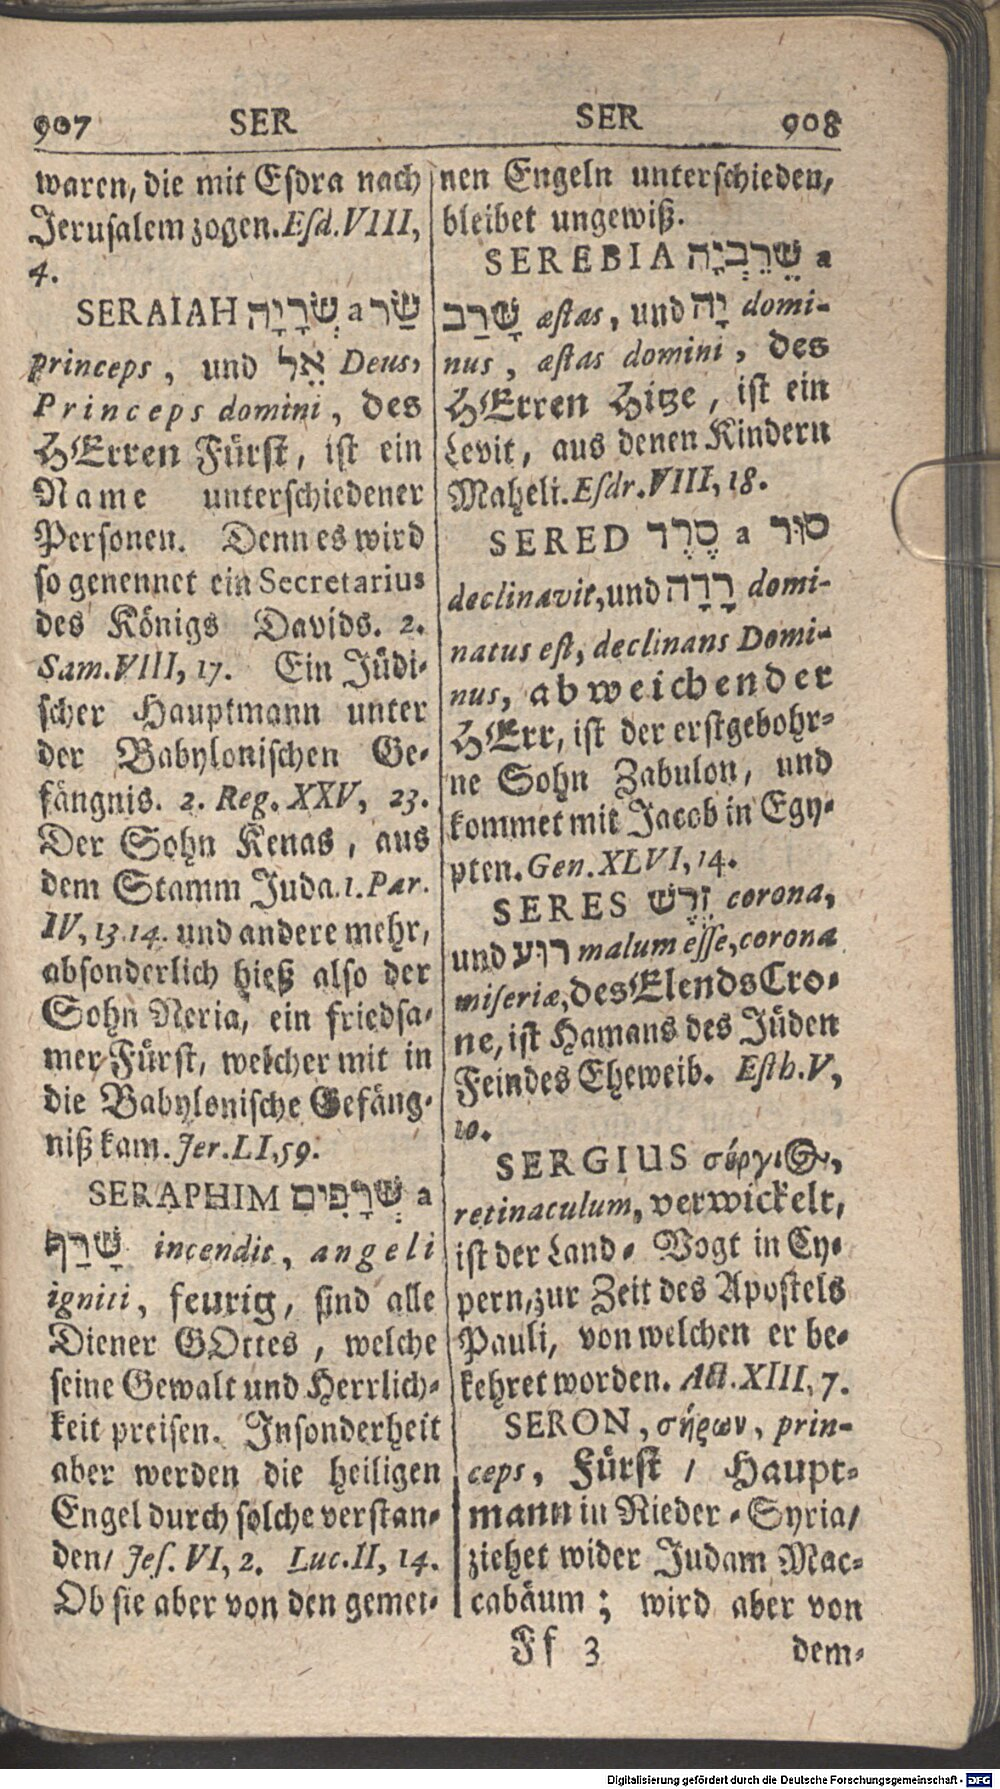 907 SER
waren, die mit Esdra nach
Jerusalem zogen. Esd. VIII,
4.
SERAIAH שְׂרָיָה a שַׂר
princeps, und אֵל Deus,
Princeps domini, des
HErren Fürst, ist ein
Name unterschiedener
Personen. Denn es wird
so genennet ein Secretarius
des Königs Davids. 2.
Sam. VIII, 17. Ein Jüdi-
scher Hauptmann unter
der Babylonischen Ge-
fängnis. 2. Reg. XXV, 23.
Der Sohn Kenas, aus
dem Stamm Juda. 1. Par.
IV, 13. 14. und andere mehr,
absonderlich hieß also der
Sohn Neria, ein friedsa-
mer Fürst, welcher mit in
die Babylonische Gefäng-
niß kam. Jer. LI, 59.
SERAPHIM שְׂרָפִים a
שָׂרַף incendit, angeli
igniti, feurig, sind alle
Diener GOttes, welche
seine Gewalt und Herrlich-
keit preisen. Insonderheit
aber werden die heiligen
Engel durch solche verstan-
den/ Jes. VI, 2. Luc. II, 14.
Ob sie aber von den gemei-
SER 908
nen Engeln unterschieden,
bleibet ungewiß.
SEREBIA שֵׁרֵבְיָה a
שָׁרַב æstas, und יָה domi-
nus, æstas domini, des
HErren Hitze, ist ein
Levit, aus denen Kindern
Maheli. Esdr. VIII, 18.
SERED סֶרֶד a סוּר
declinavit, und רָדָה domi-
natus est, declinans Domi-
nus, abweichender
HErr, ist der erstgebohr-
ne Sohn Zabulon, und
kommet mit Jacob in Egy-
pten. Gen. XLVI, 14.
SERES זֶרֶשׁ corona,
und רוּע malum esse, corona
miseriæ, des Elends Cro-
ne, ist Hamans des Jüden
Feindes Eheweib. Esth. V,
10.
SERGIUS σέργιος,
retinaculum, verwickelt,
ist der Land-Vogt in Cy-
pern, zur Zeit des Apostels
Pauli, von welchen er be-
kehret worden. Act. XIII, 7.
SERON, σήρων, prin-
ceps, Fürst / Haupt-
mann in Nieder-Syria/
ziehet wider Judam Mac-
cabäum; wird aber von
Ff 3 dem-
Digitalisierung gefördert durch die Deutsche Forschungsgemeinschaft - DFG